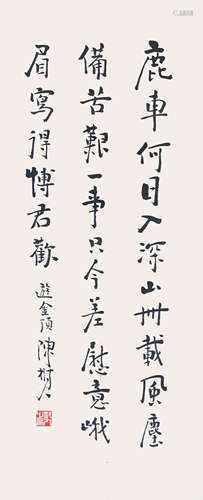 鹿車何日入深山卅載風塵
備苦艱一事只今差慰意峨
眉寫得博君歡
遊金頂陳樹人